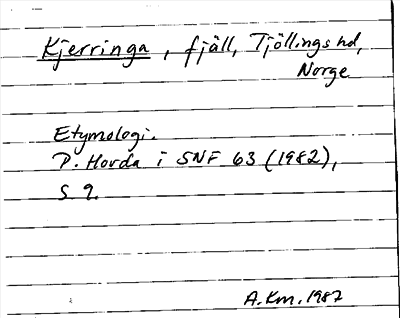 Kjerringa, fjäll, Tjöllings hd,
Norge
Etymologi.
P. Hovda i SNF 63 (1982),
s 9.
A.Km. 1987